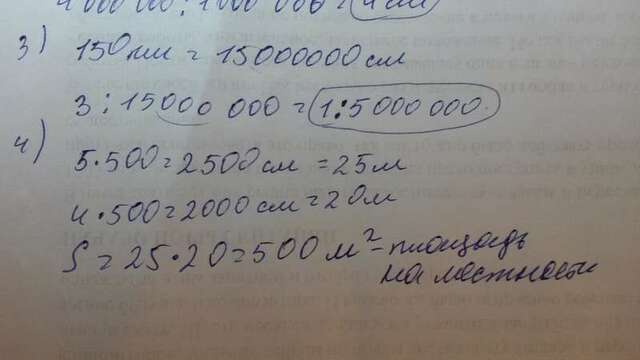 4 000 000 : 1 000 000 = 4 см
3) 150 км = 15000000 см
3 : 15000 000 = 1:5000 000.
4) 5·500=2500 см =25 м
4·500=2000 см=20 м
S = 25·20=500 м² - площадь
на местности